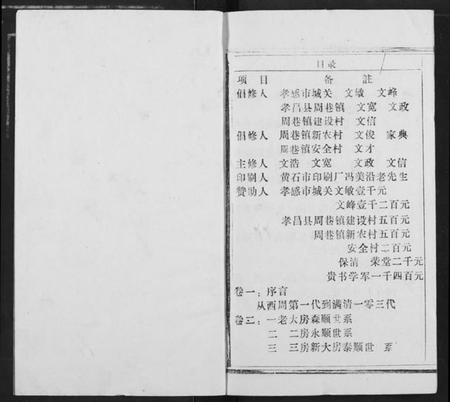 目录
项 目 备 註
倡修人 孝感市城关 文敏 文峰
孝昌县周巷镇 文宽 文政
周巷镇建设村 文信
倡修人 周巷镇新农村 文俊 家典
周巷镇安全村 文才
主修人 文浩 文宽 文政 文信
印刷人 黄石市印刷厂冯美沿老先生
赞助人 孝感市城关文敏壹千元
文峰壹千二百元
孝昌县周巷镇建设村五百元
周巷镇新农村五百元
安全村二百元
保清 荣堂二千元
贵书学军一千四百元
卷一：序言
从西周第一代到满清一零三代
卷二：一老大房森顺世系
二 二房永顺世系
三 三房新大房泰顺世 系